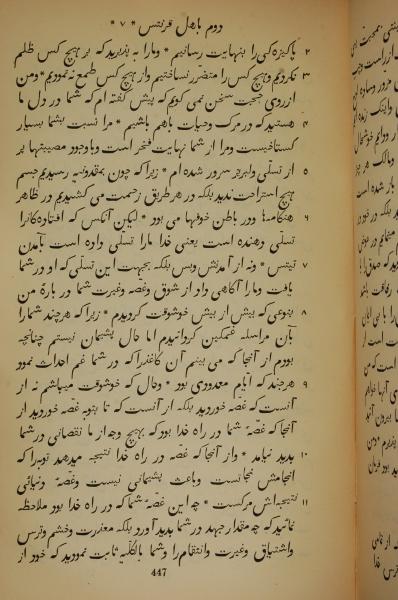 دوم باهل قرنتس * ۷ *
۲ پاکیزه‌کی را بنهایت رسانیم * ومارا به پذیرید که بر هیچ کس ظلم
۳ نکردیم وهیچ کس را متضرر نساختیم واز هیچ کس طمع نه‌نمودیم * ومن
ازروی حجت سخن نمی کویم که پیش گفته ام که شما در دل ما
۴ هستید که در مرک وحیات باهم باشیم * مرا نسبت بشما بسیار
کستاخیست ومرا از شما نهایت فخر است وباوجود مصیبتها پر
۵ از تسلی ولبریز سرور شده ام * زیرا که چون بمقدونیه رسیدیم جسم
هیچ استراحت ندید بلکه در هر طریق زحمت می کشیدیم در ظاهر
۶ هنکامها ودر باطن خوفها می بود * لیکن آنکس که افتاده‌کانرا
تسلی دهنده است یعنی خدا مارا تسلی داده است بآمدن
۷ تیتس * ونه از آمدنش وبس بلکه بجهت این تسلی که او در شما
یافت ومارا آکاهی داد از شوق وغصه وغیرت شما در باره من
۸ بنوعی که بیش از بیش خوشوقت کردیدم * زیرا که هرچند شمارا
بآن مراسله غمکین کردانیدم اما حال پشیمان نیستم چنانچه
بودم از آنجا که می بینم آن کاغذرا که در شما غم احداث نمود
۹ هرچند که ایام معدودی بود * وحال که خوشوقت میباشم نه از
آنست که غصه خوردید بلکه از آنست که تا بتوبه غصه خوردید از
آنجا که غصه شما در راه خدا بود که بهیچ وجه از ما نقصانی در شما
۱۰ پدید نیامد * واز آنجا که غصه در راه خدا نتیجه میدهد توبه‌را که
انجامش نجاتست وباعث پشیمانی نیست وغصه دنیائی
۱۱ نتیجه‌اش مرکست * چه این غصه شما که در راه خدا بود ملاحظه
نمائید که چه مقدار جهد در شما پدید آورد بلکه معذرت وخشم وترس
واشتیاق وغیرت وانتقام را وشما بالکلیه ثابت نمودید که خود از
447